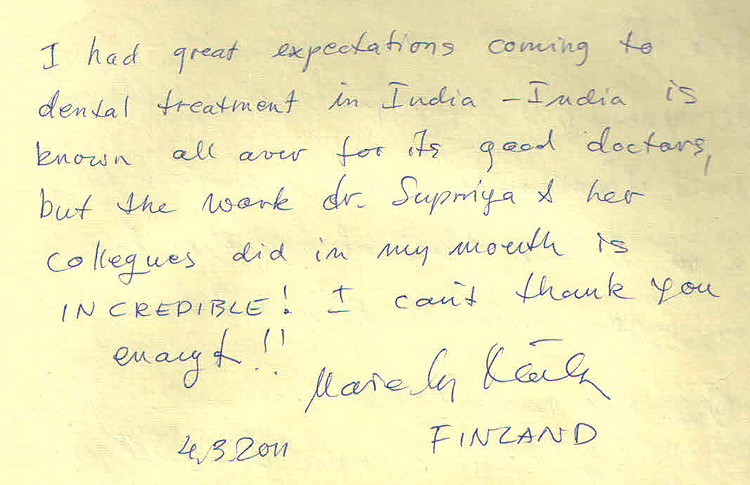 I had great expectations coming to
dental treatment in India – India is
known all over for its good doctors,
but the work dr. Supriya & her
collegues did in my mouth is
INCREDIBLE! I can't thank you
enough!!
4.3.2011
FINLAND